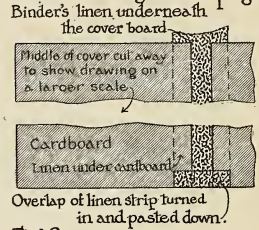 Binder's linen underneath
the cover board
Middle of cover cut away
to show drawing on
a larger scale
Cardboard
Linen under cardboard
Overlap of linen strip turned
in and pasted down.